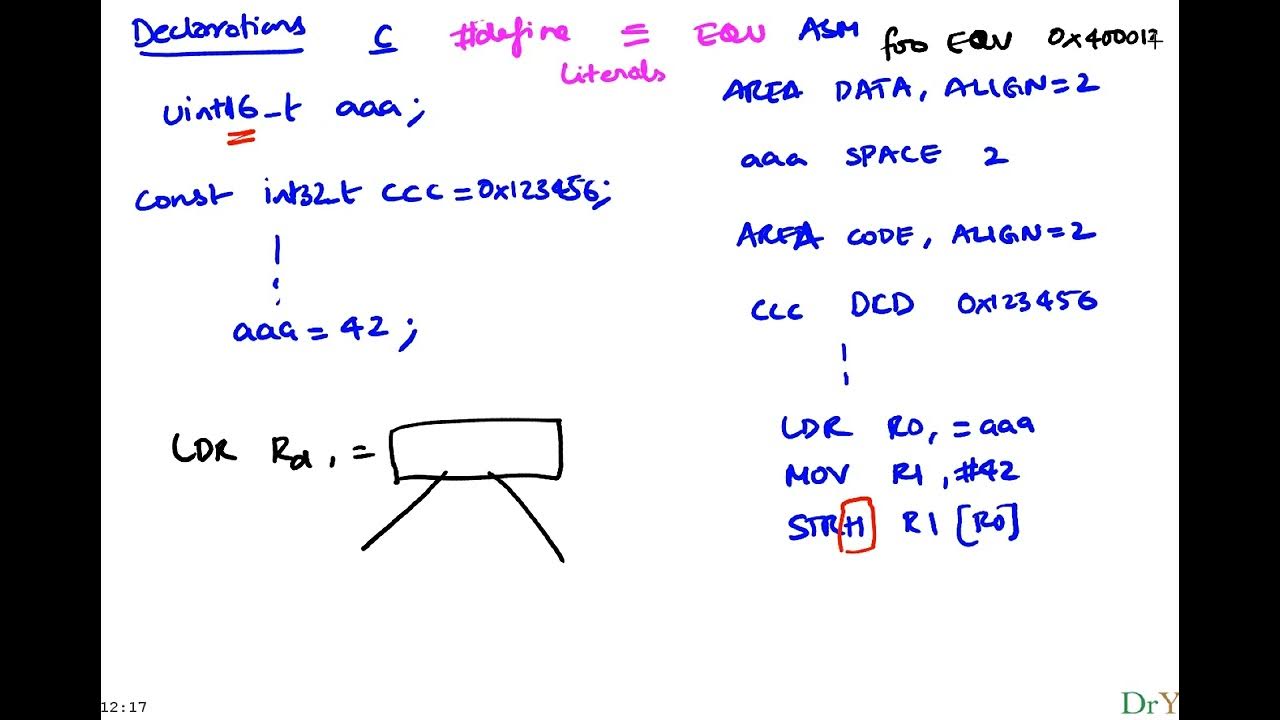 Declarations C #define = EQU ASM foo EQU 0x400017
Literals
uint16_t aaa;
const int32_t CCC = 0x123456;
aaa = 42;
LDR Rd, =
AREA DATA, ALIGN=2
aaa SPACE 2
AREA CODE, ALIGN=2
CCC DCD 0x123456
LDR R0, =aaa
MOV R1, #42
STRH R1 [R0]
12:17
DrY